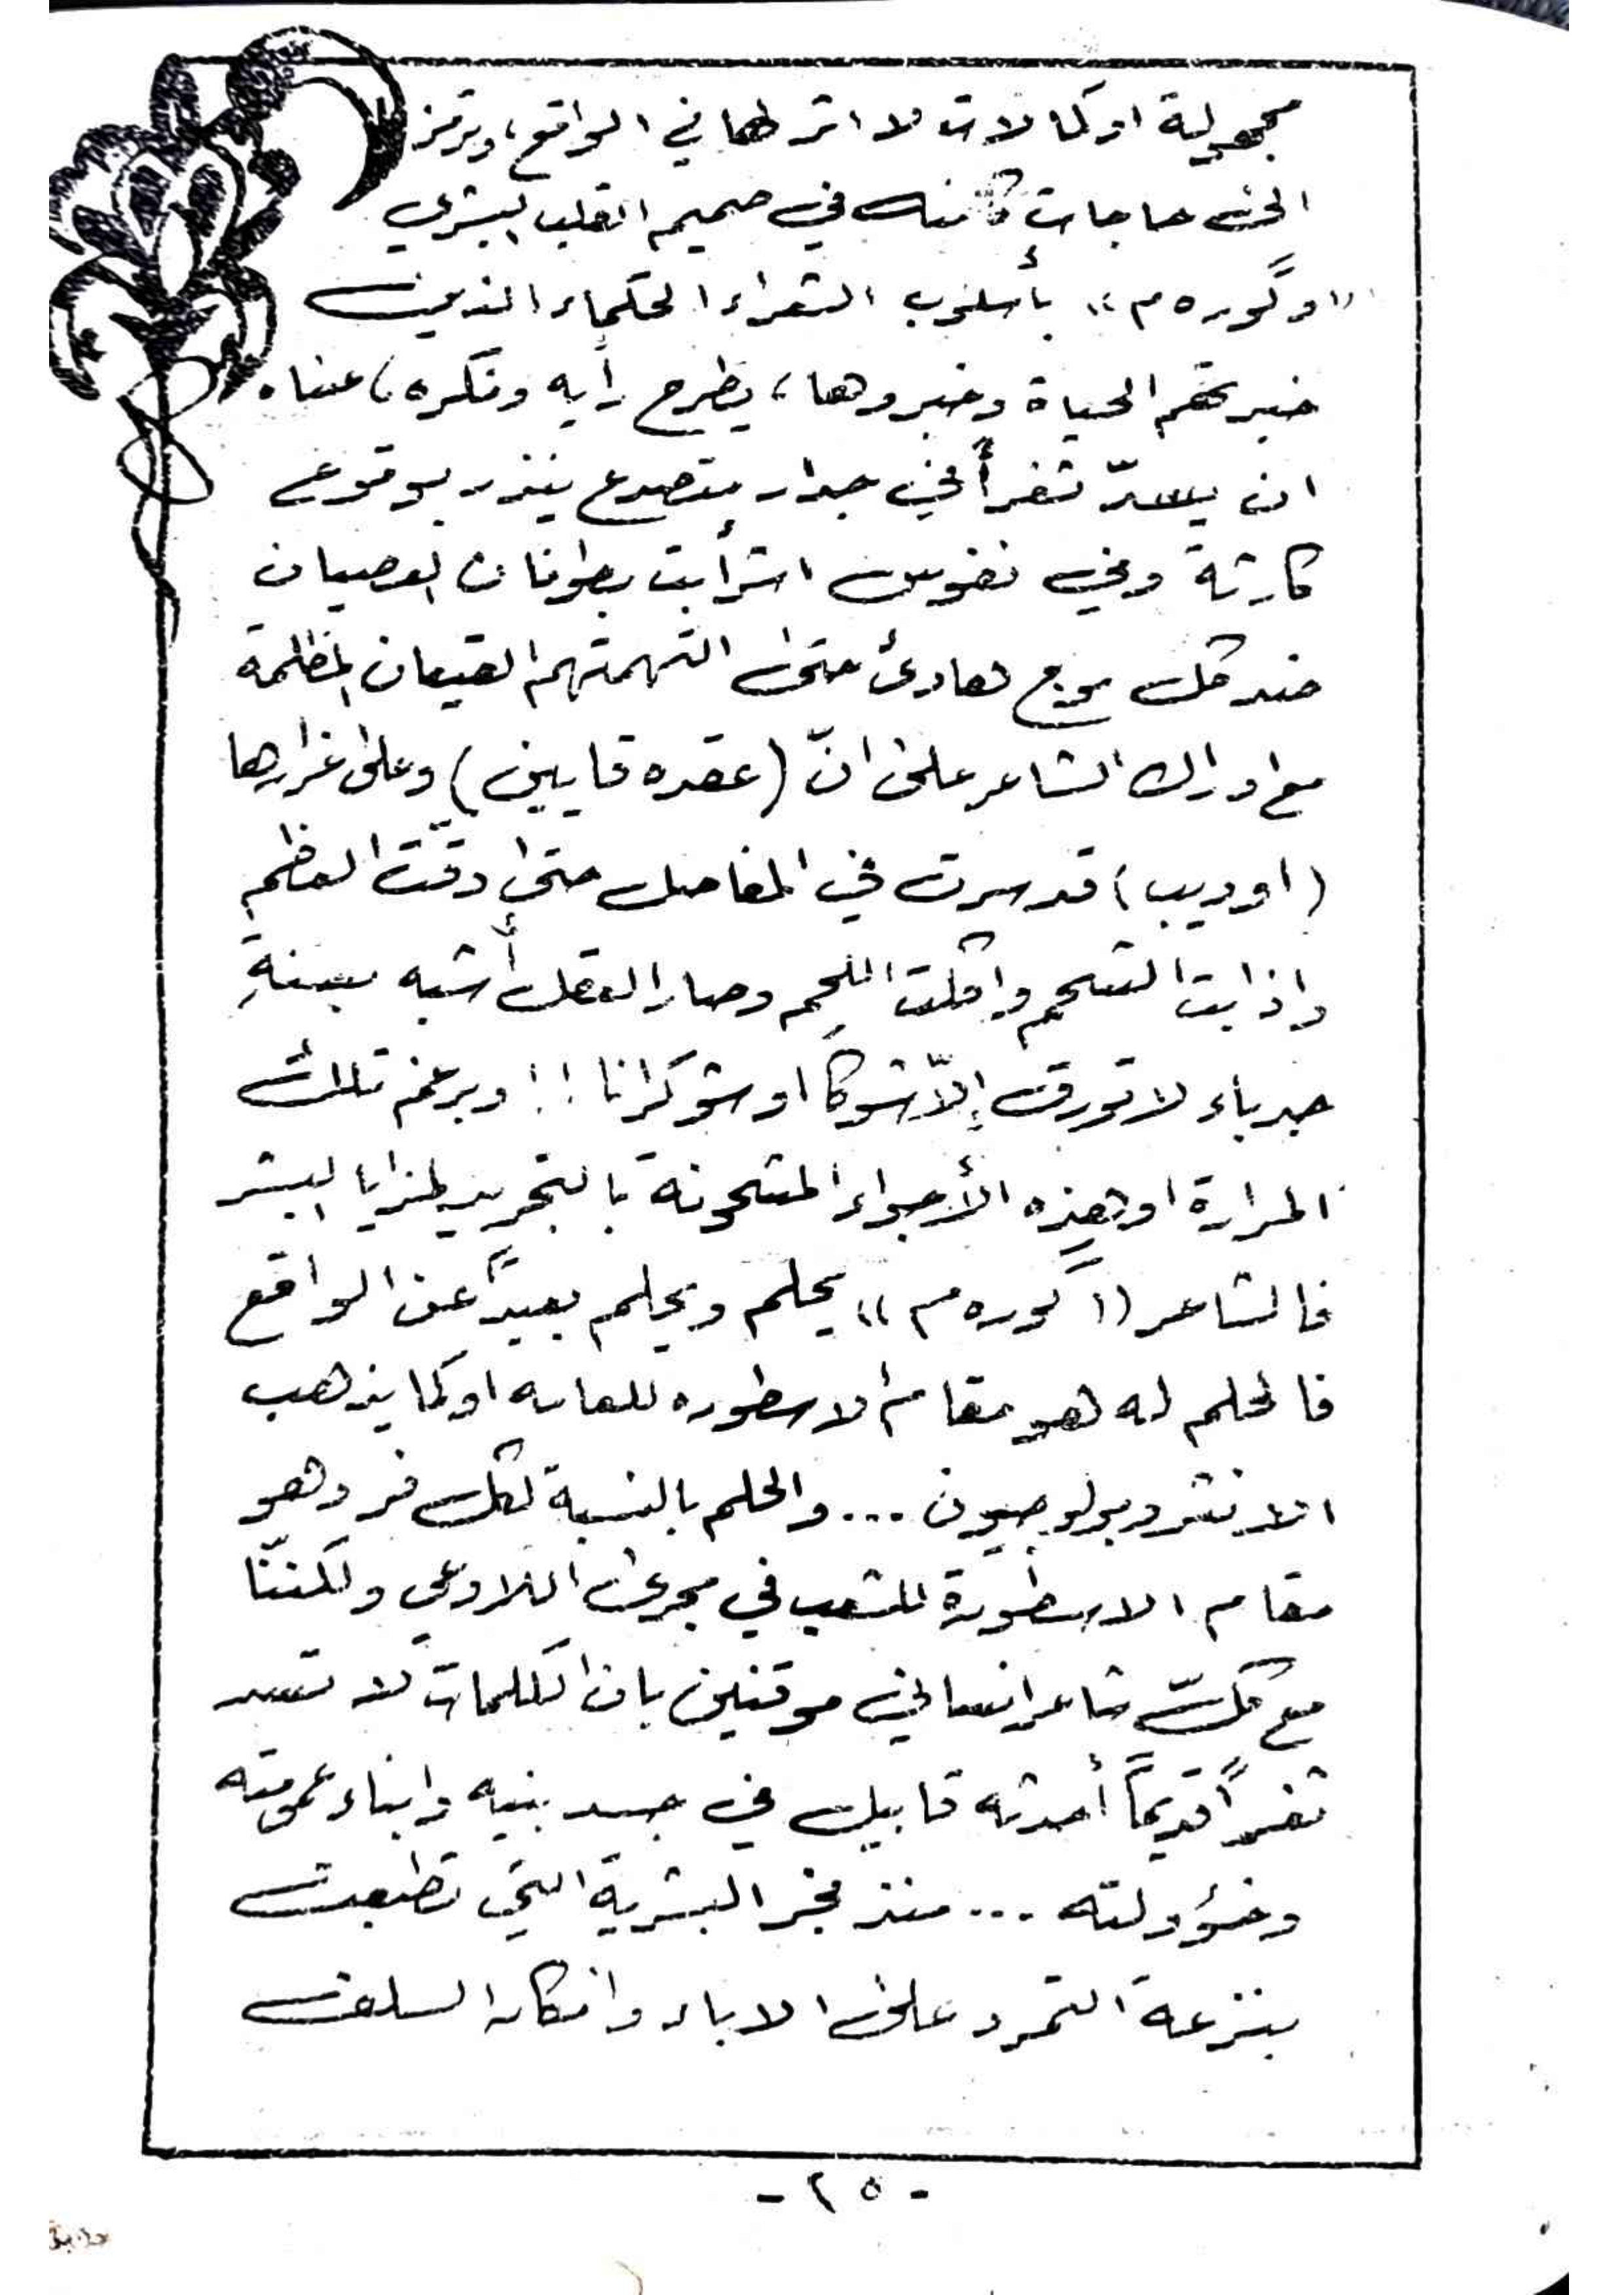 مجهولية او كمالات لا اثر لها في الواقع، وترمز
الى حاجات كامنة في صميم القلب البشري
«وگوره م» بأسلوب الشعراء الحكماء الذين
خبرتهم الحياة وخبروها، يطرح رأيه وفكره، عناه
ان يسدّ ثغراً في جدار متصدع ينذر بوقوع
كارثة وفي نفوس اشرأبت بطوفان العصيان
ضد كل موج هادئ حتى التهمتهم القيعان المظلمة
مع ادراك الشاعر على انّ (عقده قايين) وعلى غرارها
(اوديب) قد سرت في المفاصل حتى دقّت العظم
واذابت الشحم واكلت اللحم وصار العقل أشبه بسنةِ
جرباء لا تورق إلّا شوكاً او شوكرانا !! وبرغم تلك
المرارة او هذه الأجواء المشحونة بالتجريد لمزايا البشر
فالشاعر «گوره م» يحلم ويحلم بعيداً عن الواقع
فالحلم له هو مقام الاسطوره للعامه او كما يذهب
الانثروبولوجيون ... والحلم بالنسبة لكل فرد هو
مقام الاسطورة للشعب في مجرى اللاوعي ولكننّا
مع كلّ شاعر انساني موقنين بان الكلمات لا تسد
ثغراً قديماً أحدثه قابيل في جسد بنيه وابناء عمومته
وخؤولته ... منذ فجر البشرية التي تطبعت
بنزعة التمرد على الاباء وافكار السلف
- ٢٥ -